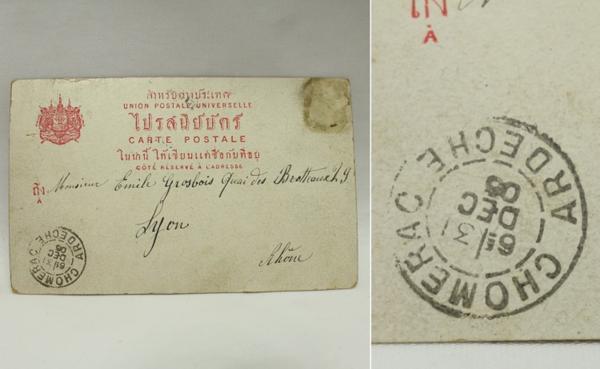 สำหรับนานาประเทศ
UNION POSTALE UNIVERSELLE
ไปรสนียบัตร์
CARTE POSTALE
ในน่านี้ ให้เขียนแต่ชื่อกับที่อยู่
CÔTÉ RÉSERVÉ À L'ADRESSE
ถึง Monsieur Emile Grosbois Quai des Brotteaux
A
Lyon
Rhône
CHOMERAC
6E 31
DEC
08
ARDECHE
A
CHOMERAC
6E 31
DEC
08
ARDECHE